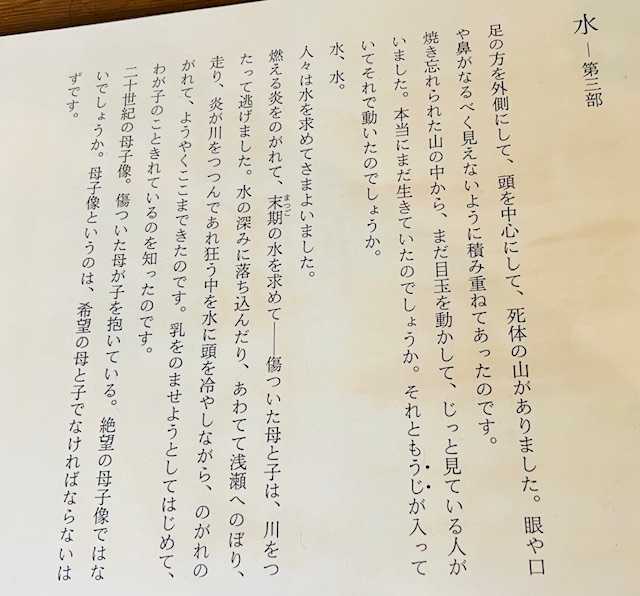 水 ― 第三部
足の方を外側にして、頭を中心にして、死体の山がありました。眼や口
や鼻がなるべく見えないように積み重ねてあったのです。
焼き忘れられた山の中から、まだ目玉を動かして、じっと見ている人が
いました。本当にまだ生きていたのでしょうか。それともうじが入って
いてそれで動いたのでしょうか。
水、水。
人々は水を求めてさまよいました。
燃える炎をのがれて、末期の水を求めて――傷ついた母と子は、川をつ
まつご
たって逃げました。水の深みに落ち込んだり、あわてて浅瀬へのぼり、
走り、炎が川をつつんであれ狂う中を水に頭を冷やしながら、のがれの
がれて、ようやくここまできたのです。乳をのませようとしてはじめて、
わが子のこときれているのを知ったのです。
二十世紀の母子像。傷ついた母が子を抱いている。絶望の母子像ではな
いでしょうか。母子像というのは、希望の母と子でなければならないは
ずです。